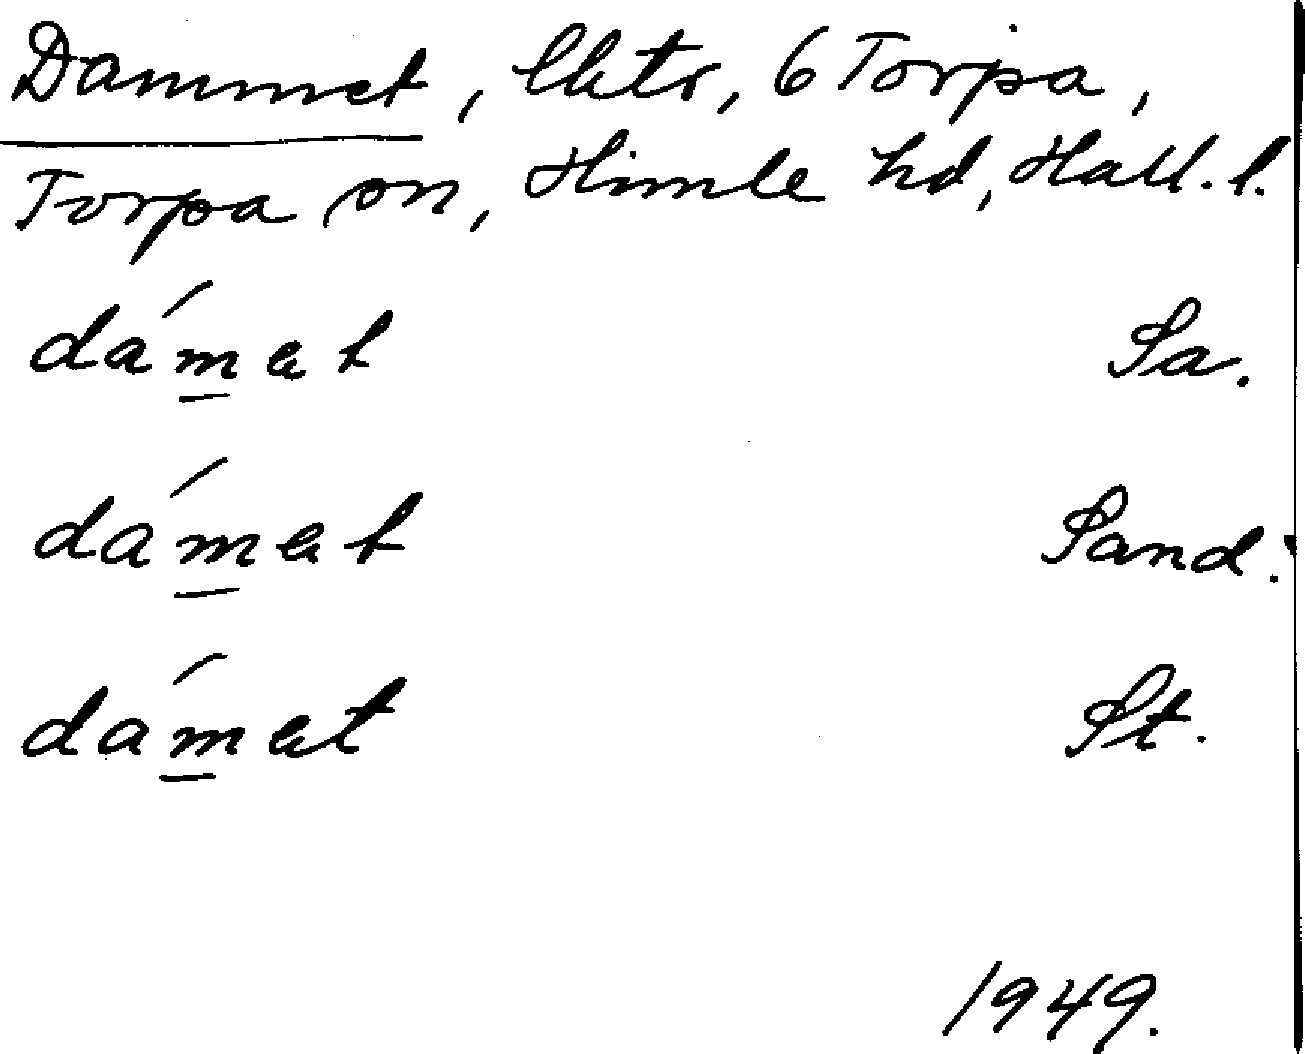 Dammet, lhts, 6 Torpa,
Torpa sn, Himle hd, Hall. l.
dám̲et Sa.
dám̲et Sand.
dám̲et St.
1949.